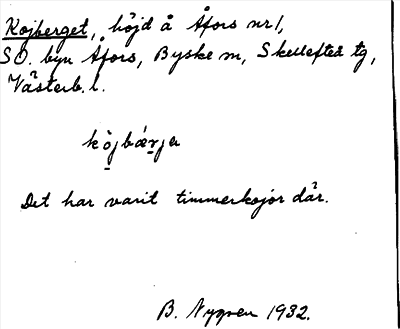 Kojberget, höjd å Åfors nr 1,
SO. byn Åfors, Byske sn, Skellefteå tg,
Västerb. l.
kòjbærjə
Det har varit timmerkojor där.
B. Nygren 1932.